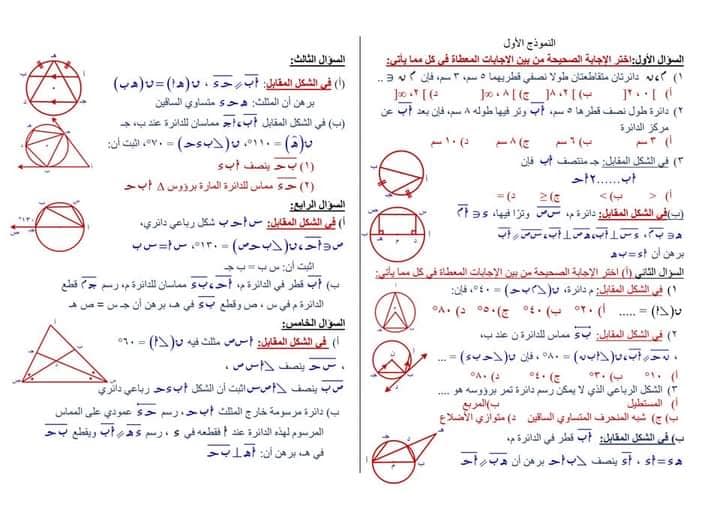 النموذج الأول
السؤال الأول: اختر الإجابة الصحيحة من بين الاجابات المعطاة في كل مما يأتي:
١) م، ن دائرتان متقاطعتان طولا نصفي قطريهما ٥ سم، ٣ سم، فإن م ن ∈ ..
أ) ]٠، ٢[ ب) ]٢، ٨[ ج) ]٨، ∞[ د) ]٢، ∞[
٢) دائرة طول نصف قطرها ٥ سم، أب وتر فيها طوله ٨ سم، فإن بعد أب عن
مركز الدائرة
أ) ٣ سم ب) ٦ سم ج) ٨ سم د) ١٠ سم
٣) في الشكل المقابل: جـ منتصف أب فإن
أب......٢أحـ
أ) < ب) > ج) ≥ د) =
(ب) في الشكل المقابل: دائرة م، س ص وترًا فيها، ء∈ أم
هـ∈ ب م، ء س ⊥ أب، هـ ص ⊥ أب، س ص // أب
برهن أن أء=ب هـ
السؤال الثاني: (أ) اختر الإجابة الصحيحة من بين الإجابات المعطاة في كل مما يأتي:
١) في الشكل المقابل: م دائرة، ن(∠م ب حـ) = ٤٠°، فإن:
ن(∠أ) = ..... أ) ٢٠° ب) ٤٠° ج) ٥٠° د) ٨٠°
٢) في الشكل المقابل: ب ء مماس للدائرة ن عند ب،
، ن حـ // أب، ن(∠أ ن ب) = ٨٠°، فإن ن(∠حـ ب ء) = ...
أ) ١٠° ب) ٣٠° ج) ٤٠° د) ٨٠°
٣) الشكل الرباعي الذي لا يمكن رسم دائرة تمر برؤوسه هو ....
أ) المستطيل ب) المربع
ج) شبه المنحرف المتساوي الساقين د) متوازي الأضلاع
ب) في الشكل المقابل: أب قطر في الدائرة م،
هـ ء=أء ، أء ينصف ∠ب أحـ برهن أن هـ ب // أحـ
السؤال الثالث:
(أ) في الشكل المقابل: أب // حـ ء ، ن(هـ أ) = ن(هـ ب)
برهن أن المثلث: هـ حـ ء متساوي الساقين
(ب) في الشكل المقابل أب، أجـ مماسان للدائرة عند ب، جـ
ن(أ) = ١١٠°، ن(∠ب ء حـ) = ٧٠°، اثبت أن:
(١) ب حـ ينصف أ ب ء
(٢) حـ ء مماس للدائرة المارة برؤوس Δ أب حـ
السؤال الرابع:
أ) في الشكل المقابل: س أ حـ ب شكل رباعي دائري،
ص∈ أحـ، ن(∠ب حـ ص) = ١٣٠°، س أ=س ب
اثبت أن: س ب = ب جـ
ب) أب قطر في الدائرة م، أحـ، ب ء مماسان للدائرة م، رسم جـ م قطع
الدائرة م في س ، ص وقطع ب ء في هـ، برهن أن جـ س = ص هـ
السؤال الخامس:
أ) في الشكل المقابل: أ س ص مثلث فيه ن(∠أ) = ٦٠°
، س حـ ينصف ∠أ س ص ،
ص ب ينصف ∠أ ص س اثبت أن الشكل أ ب ء حـ رباعي دائري
ب) دائرة مرسومة خارج المثلث أب حـ، رسم حـ ء عمودي على المماس
المرسوم لهذه الدائرة عند أ فقطعه في ء ، رسم ء هـ // أب ويقطع ب حـ
في هـ، برهن أن: أهـ ⊥ ب حـ